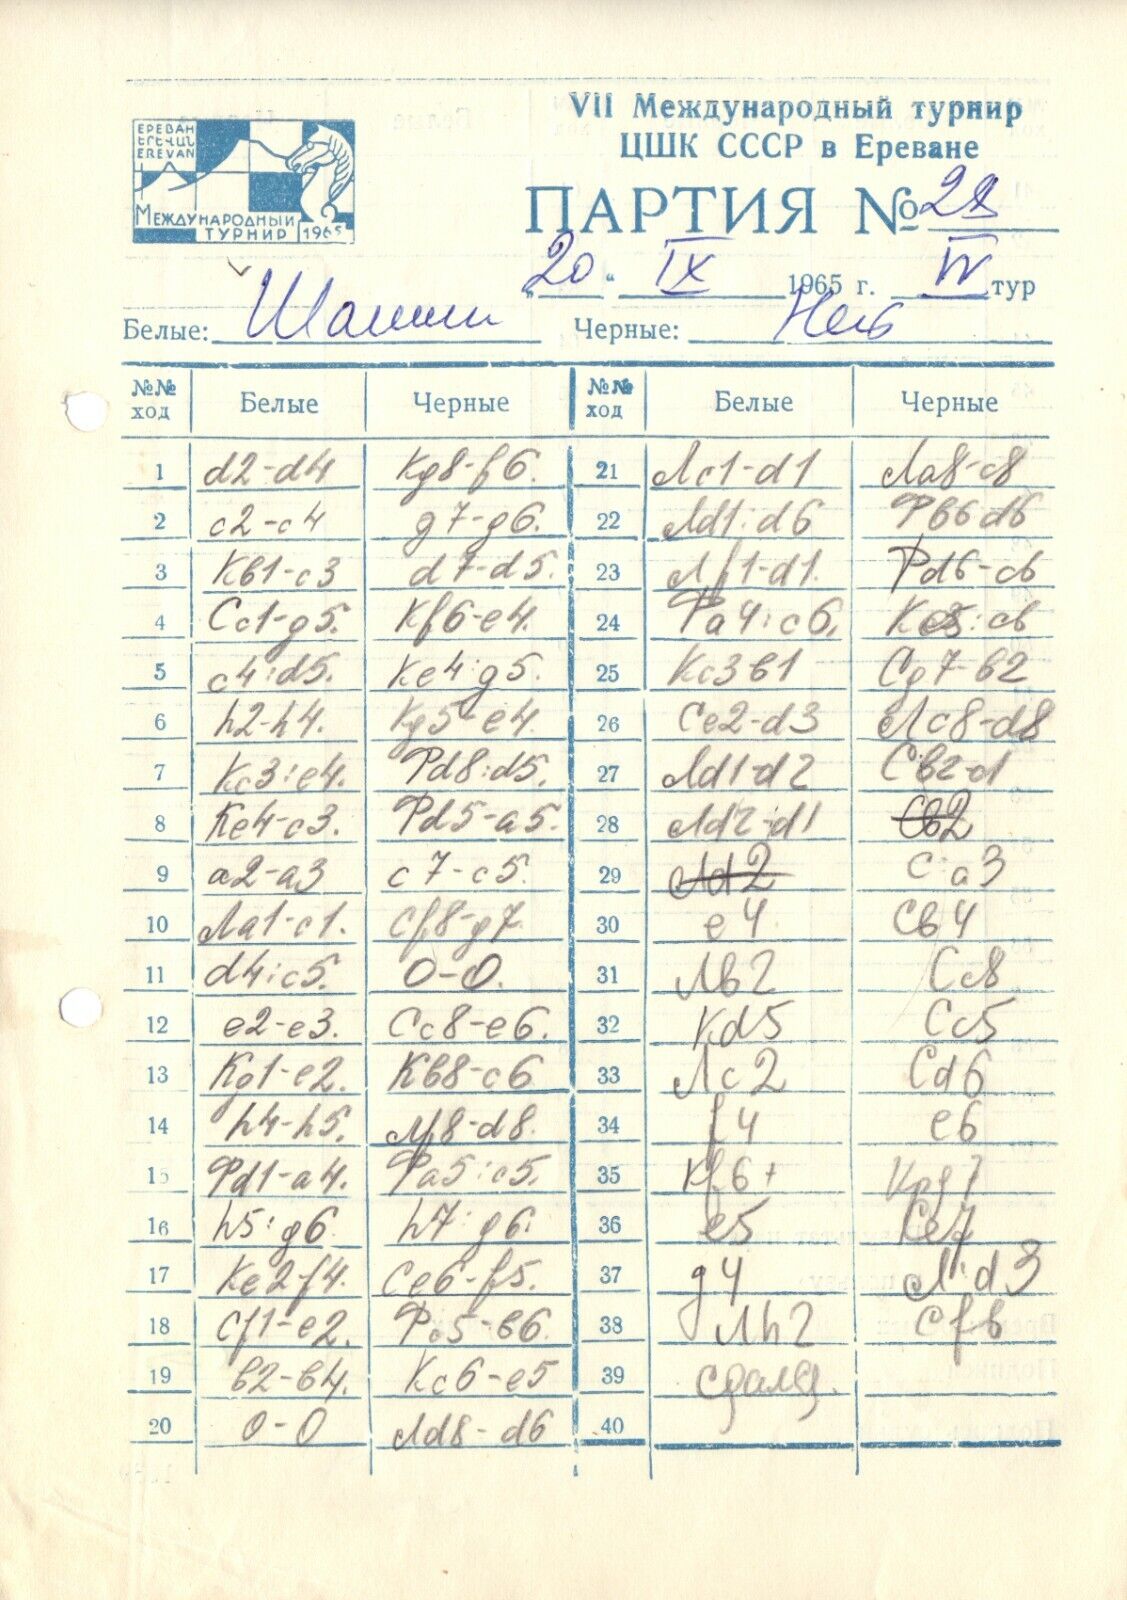 VII Международный турнир
ЦШК СССР в Ереване
ЕРЕВАН
ԵՐԵՎԱՆ
EREVAN
МЕЖДУНАРОДНЫЙ
ТУРНИР 1965
ПАРТИЯ № 28
„20“ IX 1965 г. IV тур
Белые: Шамкович Черные: Ней
№№ ход Белые Черные №№ ход Белые Черные
1 d2-d4 Kg8-f6. 21 Лc1-d1 Лa8-c8
2 c2-c4 g7-g6. 22 Лd1:d6 Фb6d6
3 Кв1-c3 d7-d5. 23 Лf1-d1. Фd6-c6
4 Cc1-g5. Kf6-e4. 24 Фa4:c6. Ke5:c6
5 c4:d5. Ke4:g5. 25 Kc3в1 Cg7-в2
6 h2-h4. Kg5-e4. 26 Ce2-d3 Лc8-d8
7 Kc3:e4. Фd8:d5. 27 Лd1-d2 Cв2-c1
8 Ke4-c3. Фd5-a5. 28 Лd2-d1 Cв2
9 a2-a3 c7-c5. 29 Лd2 C:a3
10 Лa1-c1. Cf8-g7. 30 e4 Cв4
11 d4:c5. O-O. 31 Лв2 Cc8
12 e2-e3. Cc8-e6. 32 Kd5 Cc5
13 Kg1-e2. Kв8-c6 33 Лc2 Cd6
14 h4-h5. Лf8-d8. 34 f4 e6
15 Фd1-a4. Фa5:c5. 35 Kf6+ Kpg7
16 h5:g6. h7:g6. 36 e5 Ce7
17 Ke2-f4. Ce6-f5. 37 g4 Л:d3
18 Cf1-e2. Фc5-в6. 38 Лh2 C:f6
19 в2-в4. Kc6-e5 39 сдался.
20 O-O Лd8-d6 40